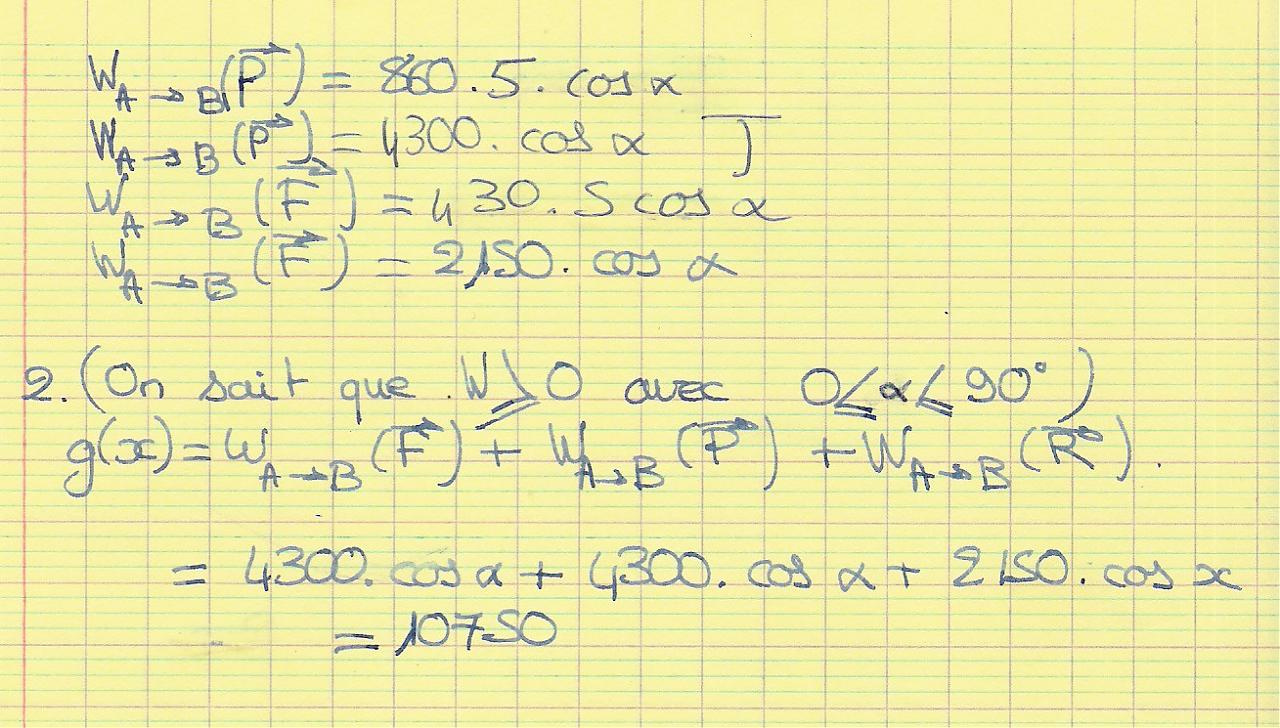 W A→B (P⃗) = 860.5. cos α
W A→B (P⃗) = 4300. cos α J
W A→B (F⃗) = 430.5 cos α
W A→B (F⃗) = 2150. cos α
2. (On sait que W ⩾ 0 avec 0 ⩽ α ⩽ 90°)
g(x) = W A→B (F⃗) + W A→B (P⃗) + W A→B (R⃗).
= 4300. cos α + 4300. cos α + 2150. cos x
= 10750